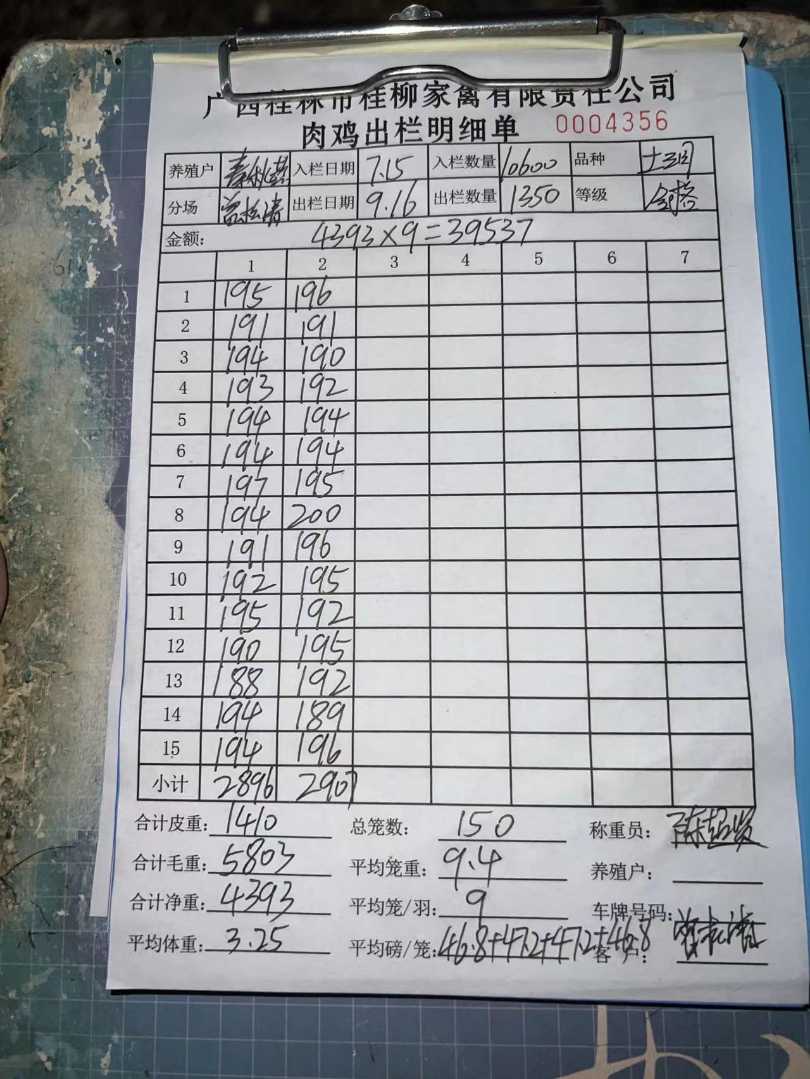 广西桂林市桂柳家禽有限责任公司
肉鸡出栏明细单 0004356
养殖户 入栏日期 7.15 入栏数量 10600 品种
分场 出栏日期 9.16 出栏数量 1350 等级
金额: 4393×9=39537
1 2 3 4 5 6 7
1 195 196
2 191 191
3 194 190
4 193 192
5 194 194
6 194 194
7 197 195
8 194 200
9 191 196
10 192 195
11 195 192
12 190 195
13 188 192
14 194 189
15 194 196
小计 2896 2907
合计皮重: 1410 总笼数: 150 称重员:
合计毛重: 5803 平均笼重: 9.4 养殖户:
合计净重: 4393 平均笼/羽: 9 车牌号码:
平均体重: 3.25 平均磅/笼: 46.8+47.2+47.2+46.8 客户: